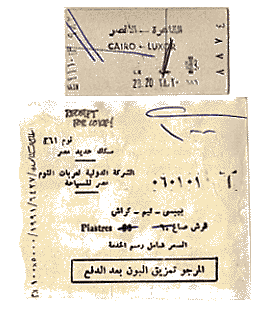 القاهرة - الأقصر
CAIRO - LUXOR
٤٨٧٧
RECEIPT
FOR COKE!
نوم ٣٦١
سكك حديد مصر
الشركة الدولية لعربات النوم
مصر للسياحة
٠٦٠١٠١
بيبسى - تيم - كراش
قرش صاغ Piastres
السعر شامل رسم الخدمة
المرجو تمزيق البون بعد الدفع